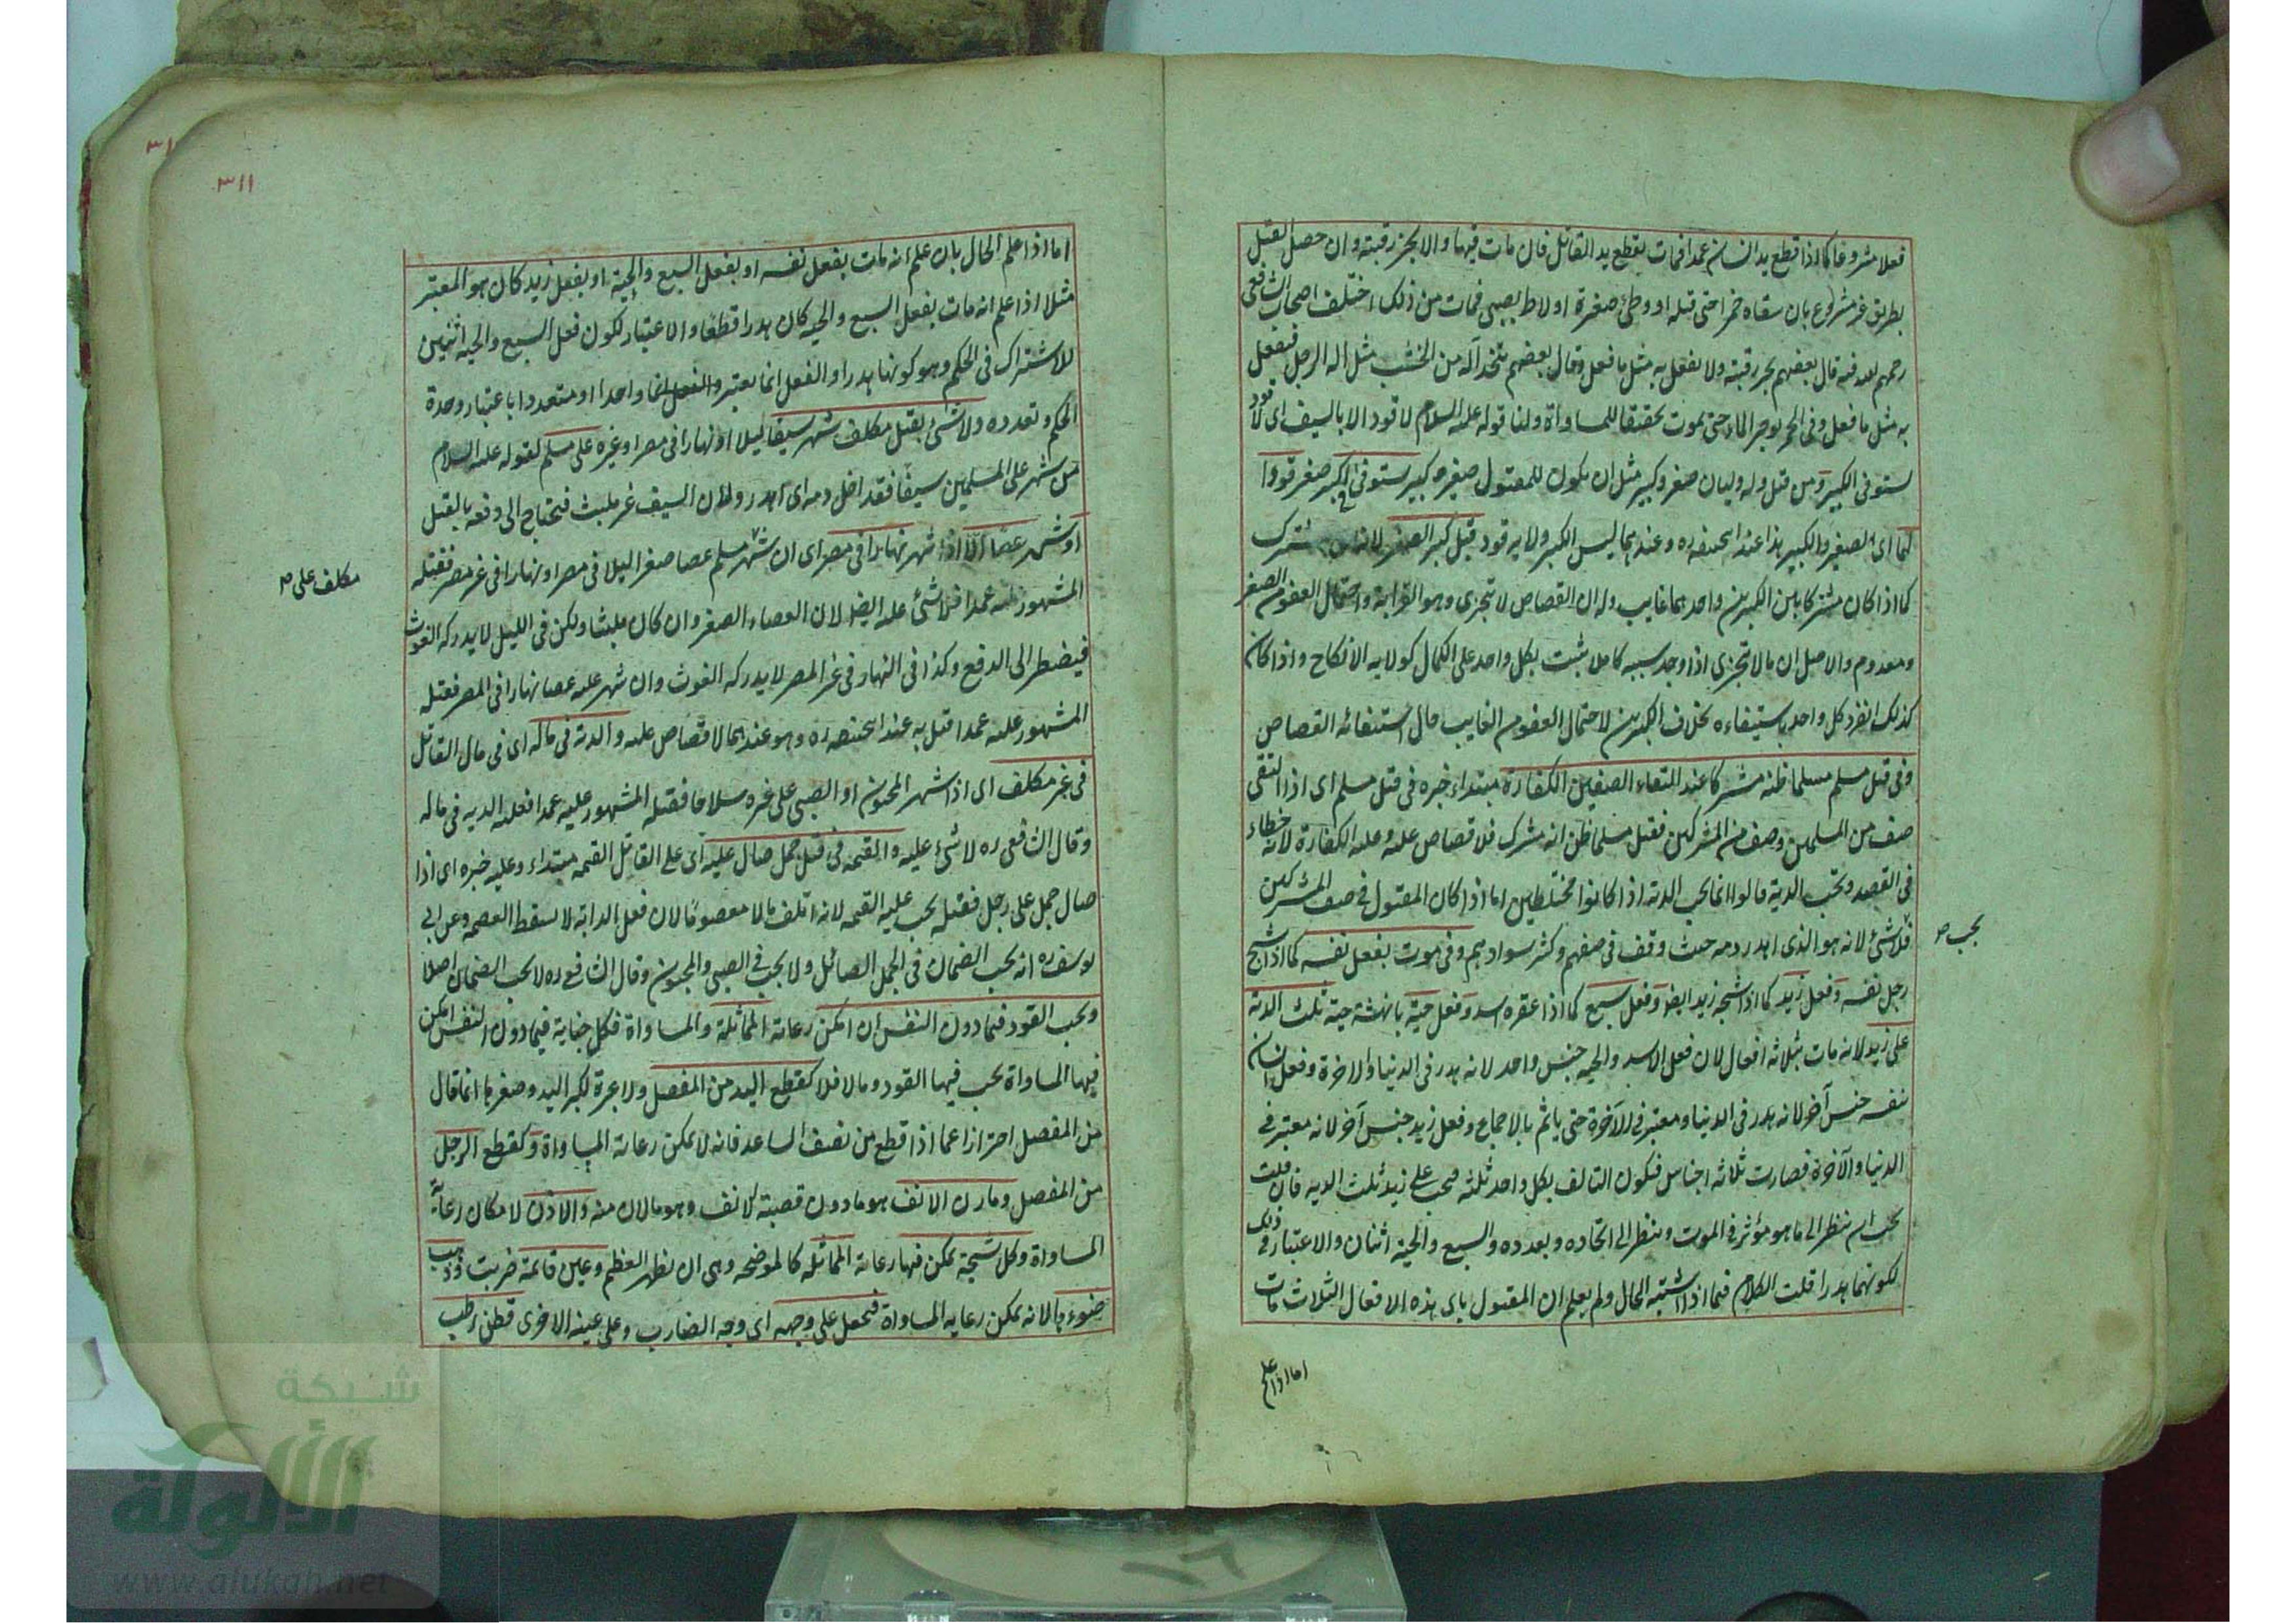 فعلا مشروعا كما اذا قطع يد انسان عمدا فمات يقطع يد القاتل فان مات فيها والا يجز رقبته وان حصل القتل
بطريق غير مشروع بان سقاه خمرا حتى قتله او وطئ صغيرة او لاط بصبي فمات من ذلك اختلف اصحاب الشافعي
رحمهم الله فيه قال بعضهم يجز رقبته ولا يفعل به مثل ما فعل وقال بعضهم يتخذ آلة من الخشب مثل آلة الرجل فيفعل
به مثل ما فعل وفى الخمر يوجر الماء حتى يموت تحقيقا للمساواة ولنا قوله عليه السلام لا قود الا بالسيف اى لا قود
يستوفى الكبير ومن قتل وله وليان صغير وكبير مثل ان يكون للمقتول صغير وكبير يستوفى الكبير صغير قودا
لهما اى الصغير والكبير هذا عند ابى حنيفه ره وعندهما ليس للكبير ولاية قود قبل كبر الصغير لانه مشترك
كما اذا كان مشتركا بين الكبيرين واحدهما غايب وله ان القصاص لا يتجزى وهو القرابة واحتمال العفو من الصغير
معدوم والاصل ان ما لا يتجزى اذا وجد سببه كاملا يثبت بكل واحد على الكمال كولاية الانكاح واذا كان
كذلك انفرد كل واحد باستيفاءه بخلاف الكبيرين لاحتمال العفو من الغايب حال استيفائه القصاص
وفى قتل مسلم مسلما ظنه مشركا عند التقاء الصفين الكفارة مبتداء خبره فى قتل مسلم اى اذا التقى
صف من المسلمين وصف من المشركين فقتل مسلما ظن انه مشرك فلا قصاص عليه وعليه الكفارة لانه خطاء
فى القصد وتجب الدية قالوا انما يجب الدية اذا كانوا مختلطين اما اذا كان المقتول فى صف المشركين
فلا شئ لانه هو الذى اهدر دمه حيث وقف فى صفهم وكثر سوادهم وفى موت بفعل نفسه كما اذا شج
يجب
رجل نفسه وفعل زيد كما اذا شجه زيد ايضا وفعل سبع كما اذا عقره اسد وفعل حية بانهشة حية ثلث الدية
على زيد لانه مات بثلاثة افعال لان فعل الاسد والحية جنس واحد لانه هدر فى الدنيا والاخرة وفعل انسان
نفسه جنس آخر لانه هدر فى الدنيا ومعتبر فى الآخرة حتى يأثم بالاجماع وفعل زيد جنس آخر لانه معتبر فى
الدنيا والآخرة فصارت ثلاثة اجناس فيكون التالف بكل واحد ثلثه فيجب على زيد ثلث الديه فان قلت
يجب ان ينظر الى ما هو مؤثر فى الموت وينظر الى اتحاده وتعدده والسبع والحية اثنان والاعتبار فى ذلك
لكونهما هدرا قلت الكلام فيما اذا اشتبه الحال ولم يعلم ان المقتول باى هذه الافعال الثلاث مات
اما اذا علم
٣١١
اما اذا علم الحال بان علم انه مات بفعل نفسه او بفعل السبع والحية او بفعل زيد كان هو المعتبر
مثلا اذا علم انه مات بفعل السبع والحية كان هدرا قطعا والاعتبار لكون فعل السبع والحية اثنين
للاشتراك فى الحكم وهو كونها هدرا والفعل انما يعتبر واحدا او متعددا باعتبار وحدة
الحكم وتعدده ولا شئ بقتل مكلف شهر سيفا ليلا او نهارا فى مصر او غيره على مسلم لقوله عليه السلام
من شهر على المسلمين سيفا فقد احل دمه اى اهدر ولان السيف غير ملبث فيحتاج الى دفعه بالقتل
او شهر عصا الا اذا شهر نهارا فى مصر اى ان شهر مسلم عصا صغيرا ليلا فى مصر او نهارا فى غير مصر فقتله
مكلف على
المشهور عليه عمدا فلا شئ عليه ايضا لان العصاء الصغير وان كان ملبثا ولكن فى الليل لا يدركه الغوث
فيضطر الى الدفع وكذا فى النهار فى غير المصر لا يدركه الغوث وان شهر عليه عصا نهارا فى المصر فقتله
المشهور عليه عمدا قتل به عند ابى حنيفه ره وهو عندهما لا قصاص عليه والدية فى ماله اى فى مال القاتل
فى غير مكلف اى اذا شهر المجنون او الصبى على غيره سلاحا فقتله المشهور عليه عمدا فعليه الدية فى ماله
وقال الشافعى ره لا شئ عليه والقيمه فى قتل جمل صال عليه اى على القاتل القيمه مبتداء وعليه خبره اى اذا
صال جمل على رجل فقتله يجب عليه القيمه لانه اتلف مالا معصوما لان فعل الدابة لا يسقط العصمه وعن ابى
يوسف ره انه يجب الضمان فى الجمل الصائل ولا يجب فى الصبى والمجنون وقال الشافعى ره لا يجب الضمان اصلا
ويجب القود فيما دون النفس ان امكن رعاية المماثلة والمساواة فكل جناية فيما دون النفس امكن
فيها المساواة يجب فيها القود ومالا فلا كقطع اليد من المفصل ولا عبرة لكبر اليد وصغرها انما قال
من المفصل احترازا عما اذا قطع من نصف الساعد فانه لا يمكن رعاية المساواة وكقطع الرجل
من المفصل ومارن الانف هو ما دون قصبة الانف وهو مالان منه والاذن لامكان رعاية
المساواة وكل شجة يمكن فيها رعاية المماثله كالموضحه وهى ان يظهر العظم وعين قائمة ضربت وذهب
ضوءها لانه يمكن رعاية المساواة فيجعل على وجهه اى وجه الضارب وعلى عينه الاخرى قطن رطب
شبكة
الألوكة
www.alukah.net